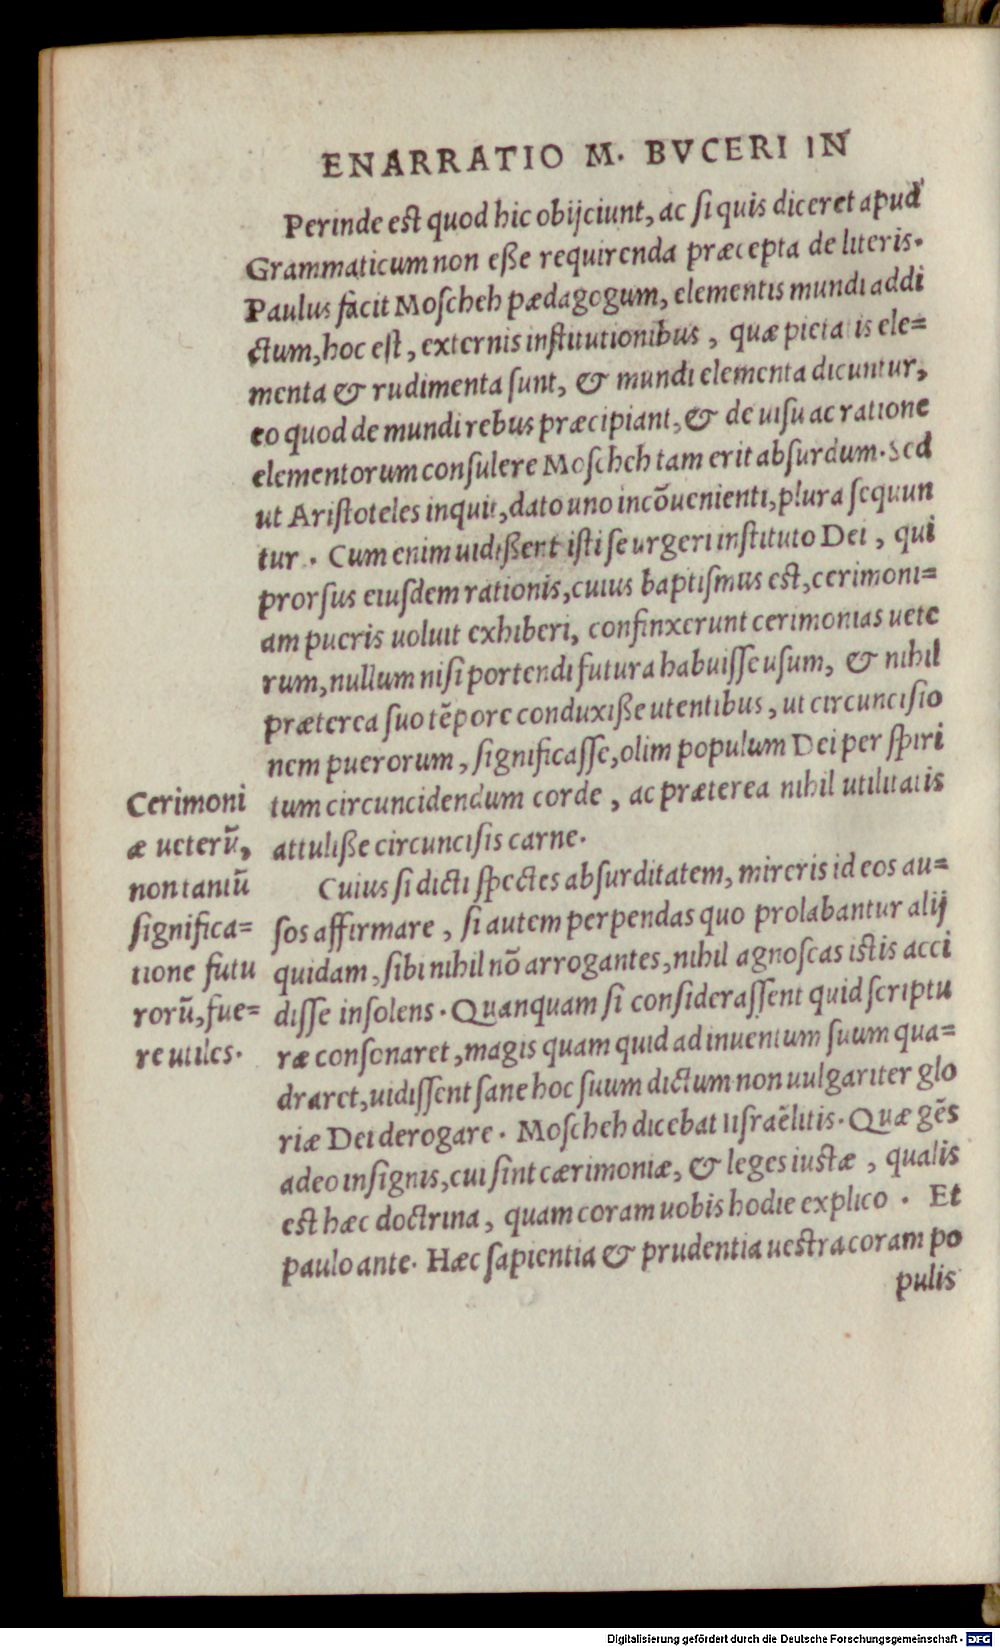 ENARRATIO M. BVCERI IN
Perinde est quod hic obijciunt, ac ſi quis diceret apud
Grammaticum non eße requirenda præcepta de literis.
Paulus facit Moſcheh pædagogum, elementis mundi addi
ctum, hoc eſt, externis inſtitutionibus, quæ pietatis ele=
menta & rudimenta ſunt, & mundi elementa dicuntur,
eo quod de mundi rebus præcipiant, & de uiſu ac ratione
elementorum conſulere Moſcheh tam erit abſurdum. Sed
ut Ariſtoteles inquit, dato uno incõuenienti, plura ſequun
tur. Cum enim uidißent iſti ſe urgeri inſtituto Dei, qui
prorſus eiuſdem rationis, cuius baptiſmus est, cerimoni=
am pueris uoluit exhiberi, confinxerunt cerimonias uete
rum, nullum niſi portendi futura habuiſſe uſum, & nihil
præterea ſuo tẽpore conduxiße utentibus, ut circunciſio
nem puerorum, ſignificaſſe, olim populum Dei per ſpiri
tum circuncidendum corde, ac præterea nihil utilitatis
attuliße circunciſis carne.
Cerimoni
æ ueterũ,
non tantũ
ſignifica=
tione futu
rorũ, fue=
re utiles.
Cuius ſi dicti ſpectes abſurditatem, mireris id eos au=
ſos affirmare, ſi autem perpendas quo prolabantur alij
quidam, ſibi nihil nõ arrogantes, nihil agnoſcas istis acci
diſſe inſolens. Quanquam ſi conſideraſſent quid ſcriptu
ræ conſonaret, magis quam quid ad inuentum ſuum qua=
draret, uidiſſent ſane hoc ſuum dictum non uulgariter glo
riæ Dei derogare. Moſcheh dicebat Iiſraẽlitis. Quæ gẽs
adeo inſignis, cui ſint cærimoniæ, & leges iustæ, qualis
est hæc doctrina, quam coram uobis hodie explico. Et
paulo ante. Hæc ſapientia & prudentia uestra coram po
pulis
Digitalisierung gefördert durch die Deutsche Forschungsgemeinschaft - DFG